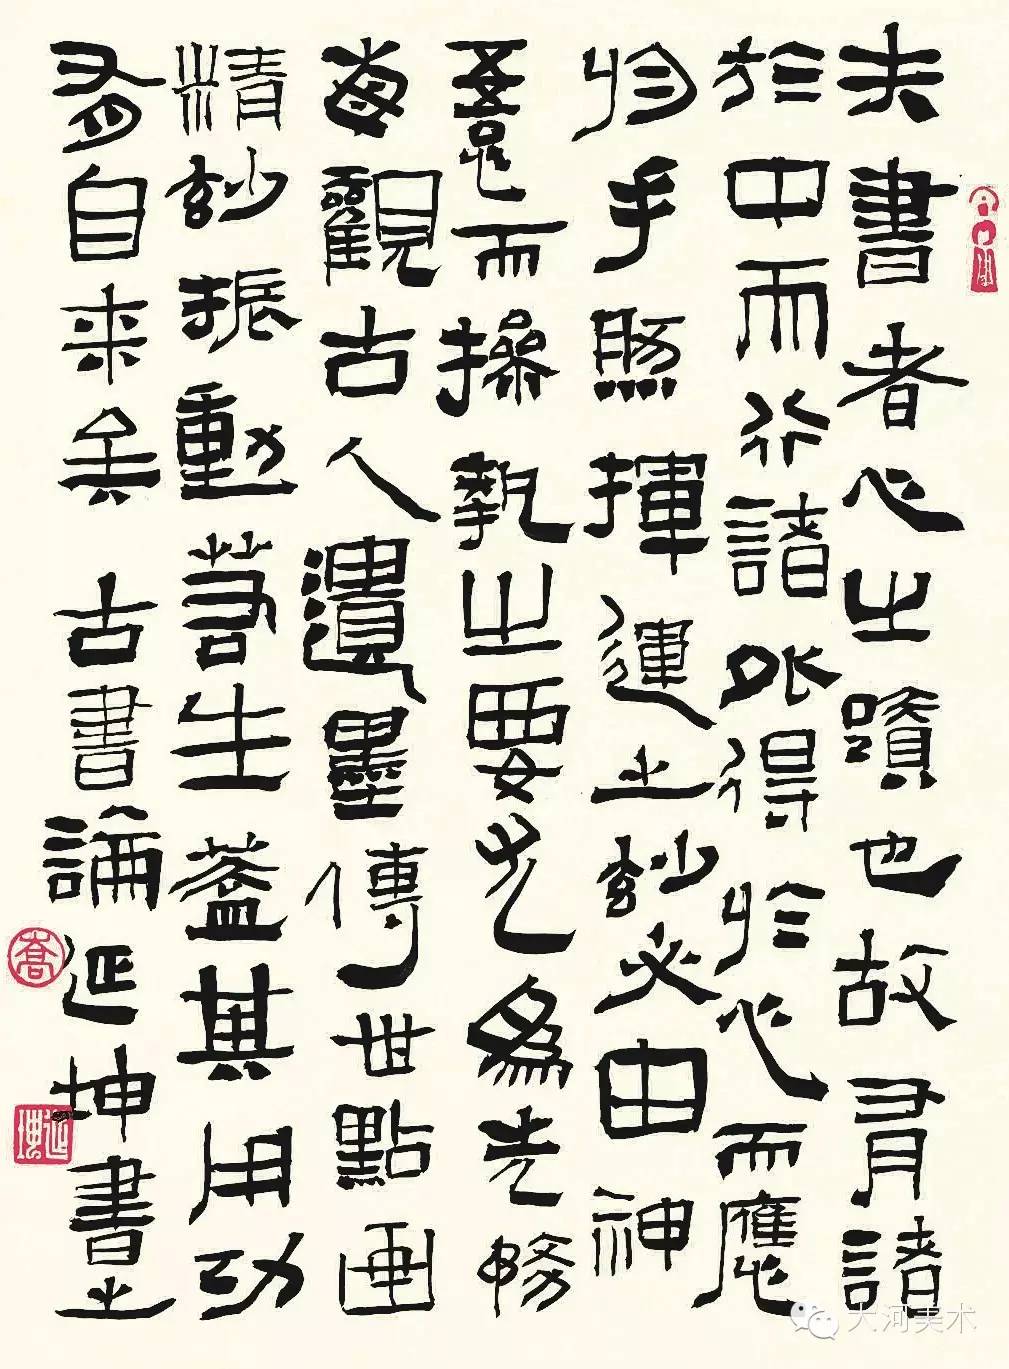 夫書者心之蹟也故有諸
於中而行諸外得於心而應
於手然揮運之妙必由神
悟而操執之要尤爲先務
每觀古人遺墨傳世點画
精妙振動若生蓋其用功
有自来矣 古書論延坤書之
喬
延坤
大河美术